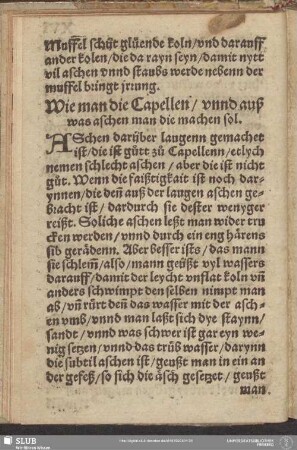 Muffel schüt glüende koln/vnd darauff
ander kolen/die da rayn seyn/damit nytt
vil aschen vnnd staubs werde nebenn der
muffel bringt jrrung.
Wie man die Capellen/ vnnd auß
was aschen man die machen sol.
ASchen darüber laugenn gemachet
ist/die ist gütt zů Capellenn/etlych
nemen schlecht aschen/aber die ist nicht
gůt. Wenn die faißtigkait ist noch dar-
ynnen/die deñ auß der laugen aschen ge-
bracht ist/dardurch sie dester wenyger
reißt. Soliche aschen leßt man wider tru
cken werden/vnnd durch ein eng härens
sib gerädenn. Aber besser ists/das mann
sie schlem̃/also/mann geüßt vyl wassers
darauff/damit der leycht vnflat koln vñ
anders schwimpt den selben nimpt man
ab/vñ rürt deñ das wasser mit der asch-
en vmb/vnnd man laßt sich dye staynn/
sandt/vnnd was schwer ist gar eyn we-
nig setzen/vnnd das trüb wasser/darynn
die subtil aschen ist/geußt man in ein an
der gefeß/so sich die äsch gesetzet/geußt
man
SLUB
Wir führen Wissen.